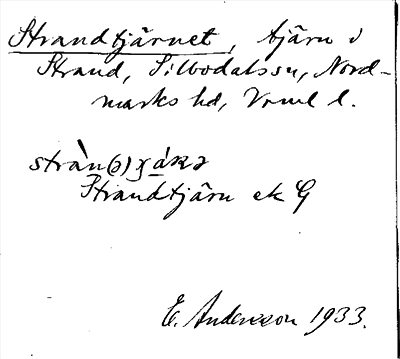 Strandtjärnet, tjärn i
Strand, Silbodalssn, Nord-
marks hd, Vrml l.
Strandtjärn ek G
E. Andersson 1933.